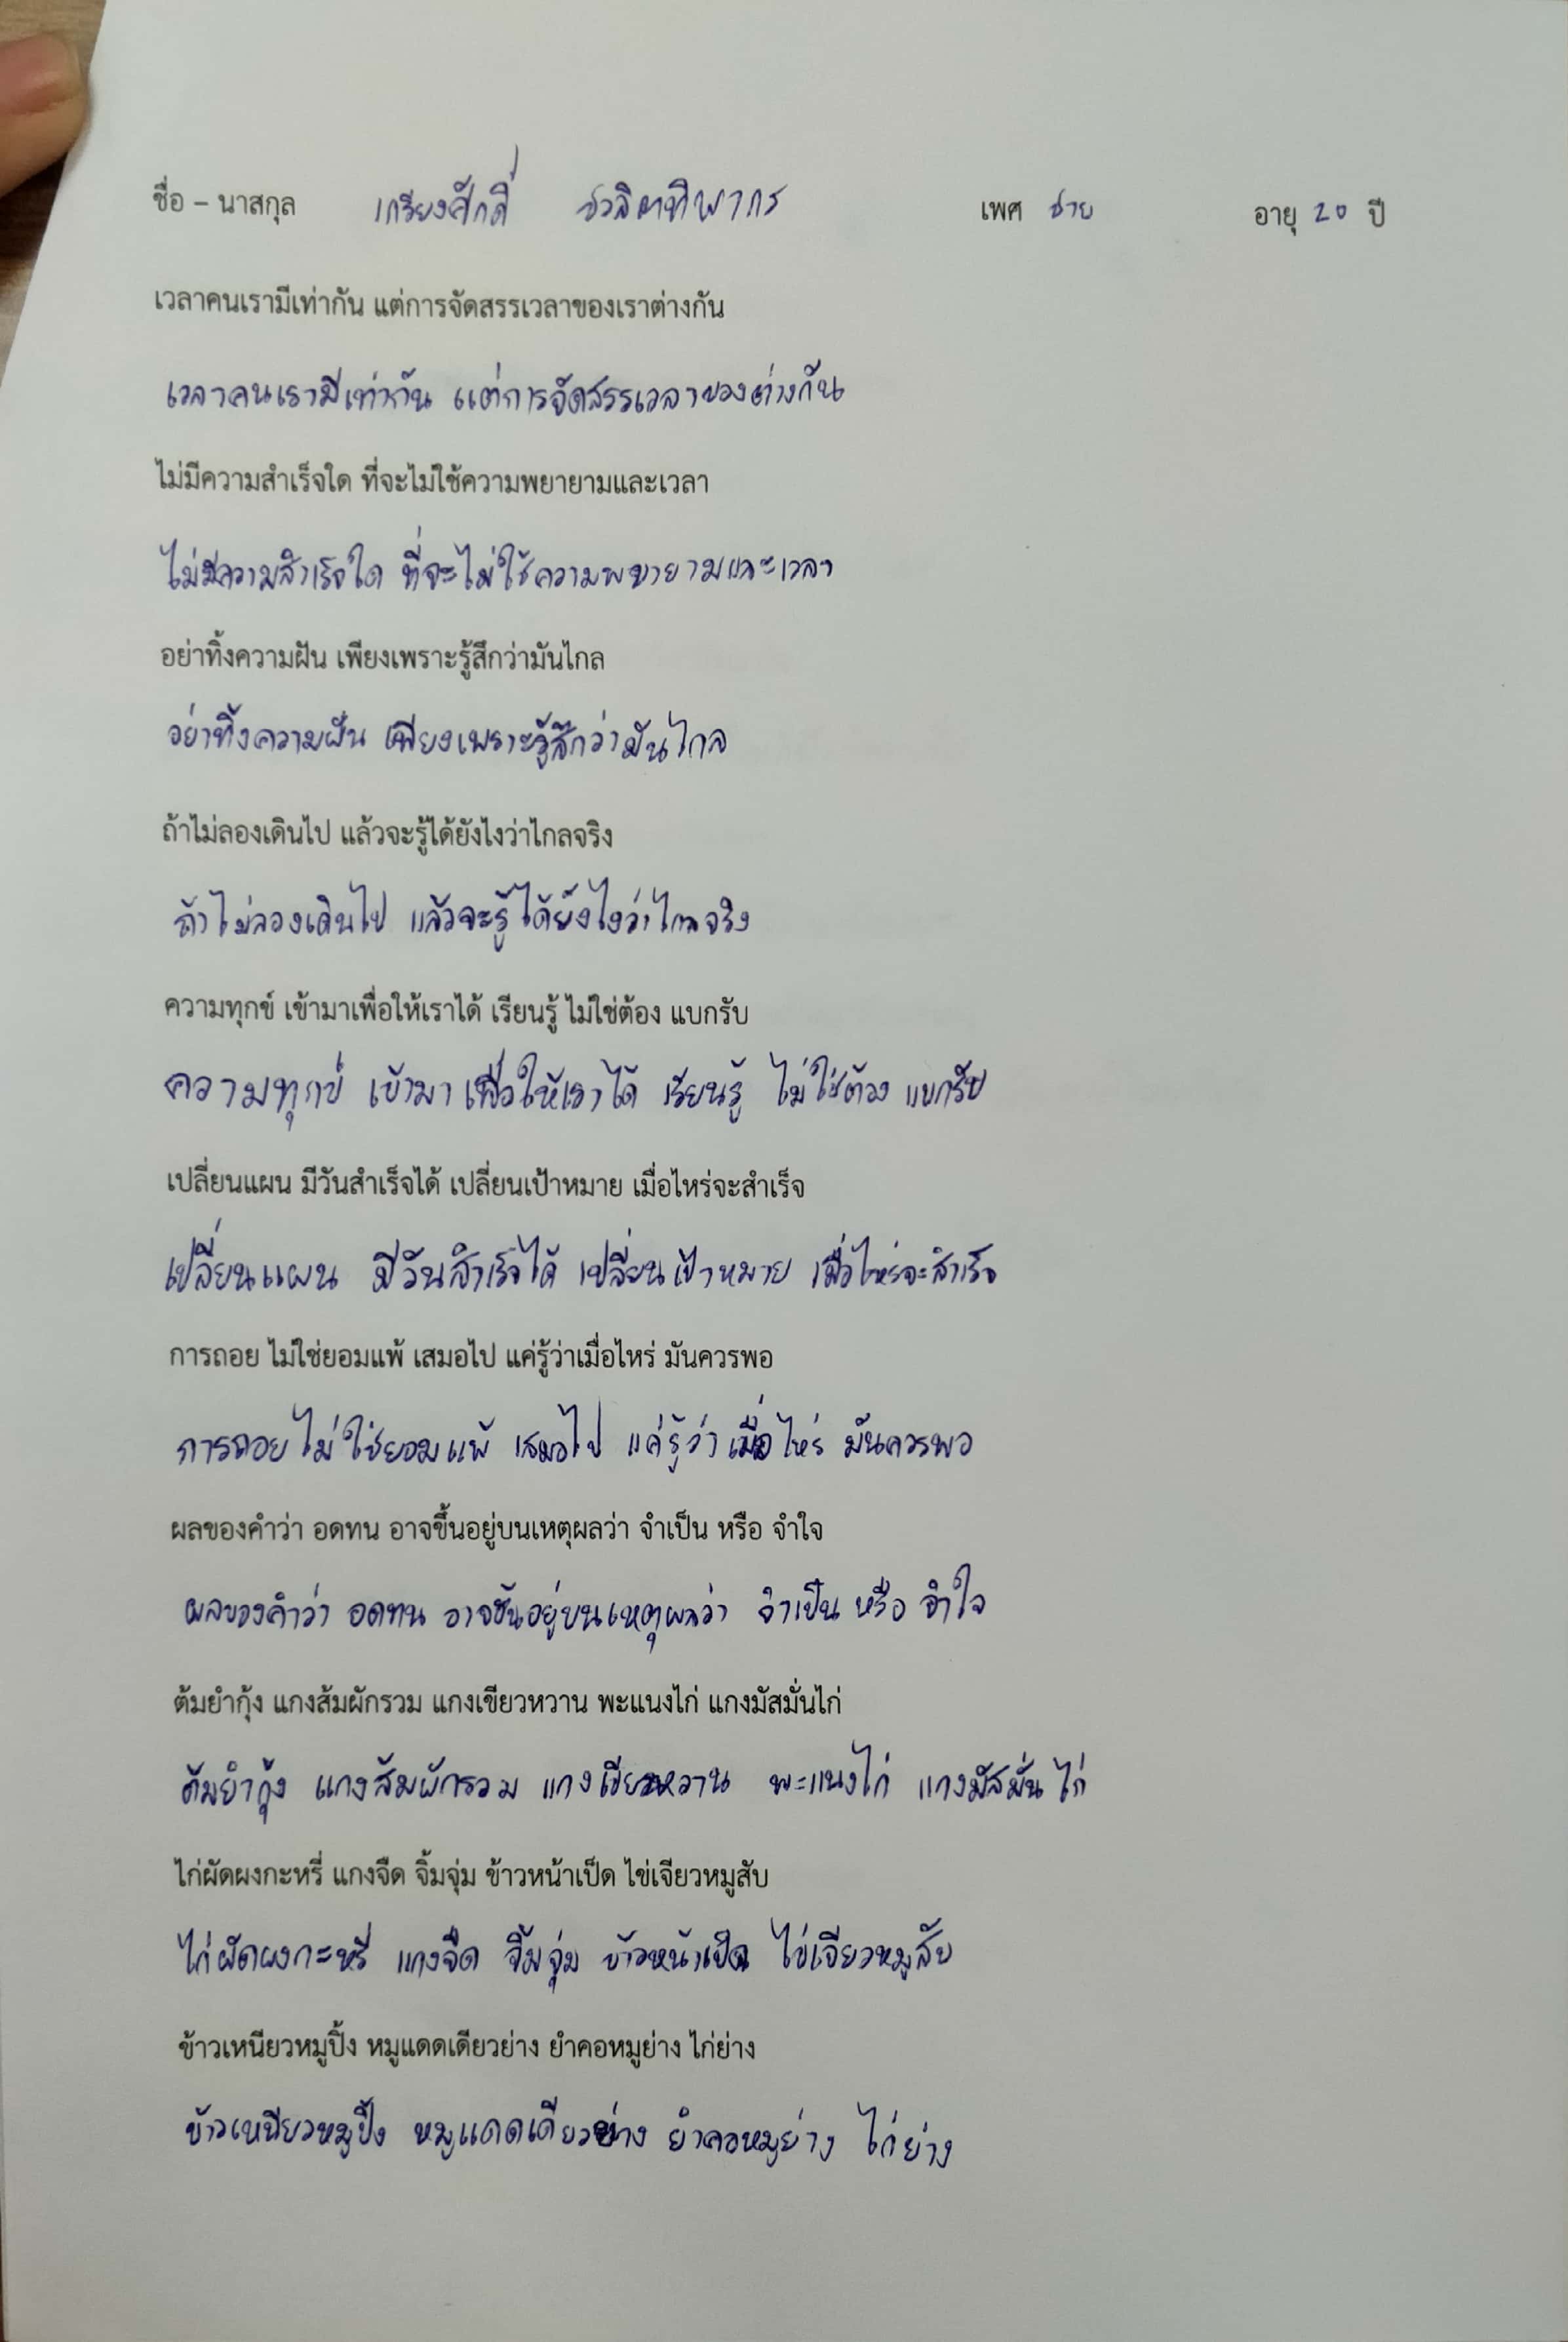 ชื่อ – นาสกุล เกรียงศักดิ์ ชวลิตทิพากร เพศ ชาย อายุ 20 ปี
เวลาคนเรามีเท่ากัน แต่การจัดสรรเวลาของเราต่างกัน
เวลาคนเรามีเท่ากัน แต่การจัดสรรเวลาของต่างกัน
ไม่มีความสำเร็จใด ที่จะไม่ใช้ความพยายามและเวลา
ไม่มีความสำเร็จใด ที่จะไม่ใช้ความพยายามและเวลา
อย่าทิ้งความฝัน เพียงเพราะรู้สึกว่ามันไกล
อย่าทิ้งความฝัน เพียงเพราะรู้สึกว่ามันไกล
ถ้าไม่ลองเดินไป แล้วจะรู้ได้ยังไงว่าไกลจริง
ถ้าไม่ลองเดินไป แล้วจะรู้ได้ยังไงว่าไกลจริง
ความทุกข์ เข้ามาเพื่อให้เราได้ เรียนรู้ ไม่ใช่ต้อง แบกรับ
ความทุกข์ เข้ามาเพื่อให้เราได้ เรียนรู้ ไม่ใช่ต้อง แบกรับ
เปลี่ยนแผน มีวันสำเร็จได้ เปลี่ยนเป้าหมาย เมื่อไหร่จะสำเร็จ
เปลี่ยนแผน มีวันสำเร็จได้ เปลี่ยนเป้าหมาย เมื่อไหร่จะสำเร็จ
การถอย ไม่ใช่ยอมแพ้ เสมอไป แค่รู้ว่าเมื่อไหร่ มันควรพอ
การถอย ไม่ใช่ยอมแพ้ เสมอไป แค่รู้ว่าเมื่อไหร่ มันควรพอ
ผลของคำว่า อดทน อาจขึ้นอยู่บนเหตุผลว่า จำเป็น หรือ จำใจ
ผลของคำว่า อดทน อาจขึ้นอยู่บนเหตุผลว่า จำเป็น หรือ จำใจ
ต้มยำกุ้ง แกงส้มผักรวม แกงเขียวหวาน พะแนงไก่ แกงมัสมั่นไก่
ต้มยำกุ้ง แกงส้มผักรวม แกงเขียวหวาน พะแนงไก่ แกงมัสมั่นไก่
ไก่ผัดผงกะหรี่ แกงจืด จิ้มจุ่ม ข้าวหน้าเป็ด ไข่เจียวหมูสับ
ไก่ผัดผงกะหรี่ แกงจืด จิ้มจุ่ม ข้าวหน้าเป็ด ไข่เจียวหมูสับ
ข้าวเหนียวหมูปิ้ง หมูแดดเดียวย่าง ยำคอหมูย่าง ไก่ย่าง
ข้าวเหนียวหมูปิ้ง หมูแดดเดียวย่าง ยำคอหมูย่าง ไก่ย่าง